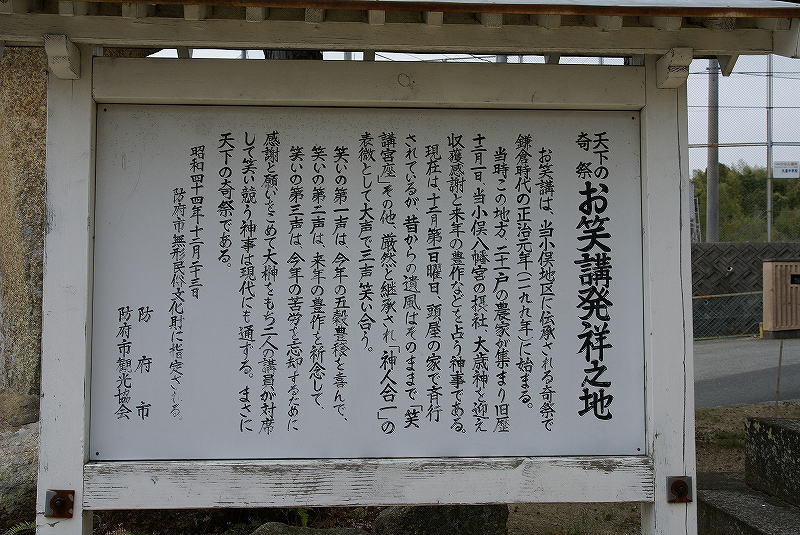 天下の奇祭 お笑講発祥之地
お笑講は、当小俣地区に伝承される奇祭で
鎌倉時代の正治元年(一一九九年)に始まる。
当時この地方、二十一戸の農家が集まり旧歴
十二月一日、当小俣八幡宮の摂社、大歳神を迎え
収穫感謝と来年の豊作などを占う神事である。
現在は、十二月第一日曜日、頭屋の家で斉行
されているが昔からの遺風はそのままで「笑
講宮座」その他、厳然と継承され「神人合一」の
表徴として大声で三声笑い合う。
笑いの第一声は、今年の五穀豊穣を喜んで、
笑いの第二声は、来年の豊作を祈念して、
笑いの第三声は、今年の苦労を忘却するために
感謝と願いをこめて大榊をもち二人の講員が対席
して笑い競う神事は現代にも通ずる。まさに
天下の奇祭である。
昭和四十四年十二月二十三日
防府市無形民俗文化財に指定される。
防府市
防府市観光協会